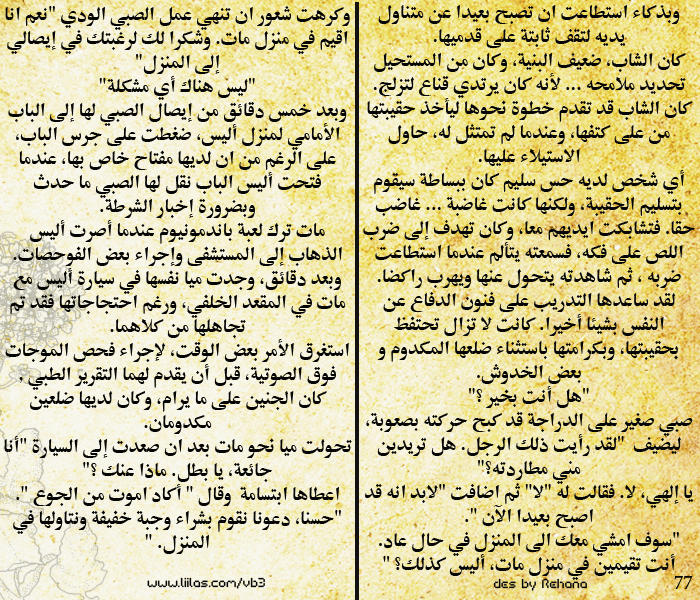 وبذكاء استطاعت ان تصبح بعيدا عن متناول
يديه لتقف ثابتة على قدميها.
كان الشاب، ضعيف البنية، وكان من المستحيل
تحديد ملامحه ... لأنه كان يرتدي قناع لتزلج.
كان الشاب قد تقدم خطوة نحوها ليأخذ حقيبتها
من على كتفها، وعندما لم تمتثل له، حاول
الاستيلاء عليها.
أي شخص لديه حس سليم كان ببساطة سيقوم
بتسليم الحقيبة، ولكنها كانت غاضبة ... غاضب
حقا. فتشابكت ايديهم معا، وكان تهدف إلى ضرب
اللص على فكه، فسمعته يتألم عندما استطاعت
ضربه ، ثم شاهدته يتحول عنها ويهرب راكضا.
لقد ساعدها التدريب على فنون الدفاع عن
النفس بشيئا أخيرا. كانت لا تزال تحتفظ
بحقيبتها، وبكرامتها باستثناء ضلعها المكدوم و
بعض الخدوش.
"هل أنت بخير ؟"
صبي صغير على الدراجة قد كبح حركته بصعوبة،
ليضيف "لقد رأيت ذلك الرجل. هل تريدين
مني مطاردته؟"
يا إلهي، لا. فقالت له "لا" ثم اضافت "لابد انه قد
اصبح بعيدا الآن ".
"سوف امشي معك الى المنزل في حال عاد.
أنت تقيمين في منزل مات، أليس كذلك؟ "
وكرهت شعور ان تنهي عمل الصبي الودي "نعم انا
اقيم في منزل مات. وشكرا لك لرغبتك في إيصالي
إلى المنزل"
"ليس هناك أي مشكلة"
وبعد خمس دقائق من إيصال الصبي لها إلى الباب
الأمامي لمنزل أليس، ضغطت على جرس الباب،
على الرغم من ان لديها مفتاح خاص بها، عندما
فتحت أليس الباب نقل لها الصبي ما حدث
وبضرورة إخبار الشرطة.
مات ترك لعبة باندمونيوم عندما أصرت أليس
الذهاب إلى المستشفى وإجراء بعض الفوحصات.
وبعد دقائق، وجدت ميا نفسها في سيارة أليس مع
مات في المقعد الخلفي، ورغم احتجاجاتها فقد تم
تجاهلها من كلاهما.
استغرق الأمر بعض الوقت، لإجراء فحص الموجات
فوق الصوتية، قبل أن يقدم لهما التقرير الطبي ,
كان الجنين على ما يرام، وكان لديها ضلعين
مكدومان.
تحولت ميا نحو مات بعد ان صعدت إلى السيارة "أنا
جائعة، يا بطل. ماذا عنك ؟"
اعطاها ابتسامة وقال " أكاد اموت من الجوع ".
"حسنا، دعونا نقوم بشراء وجبة خفيفة ونتاولها في
المنزل. "
www.liilas.com/vb3
des by Rehana
77